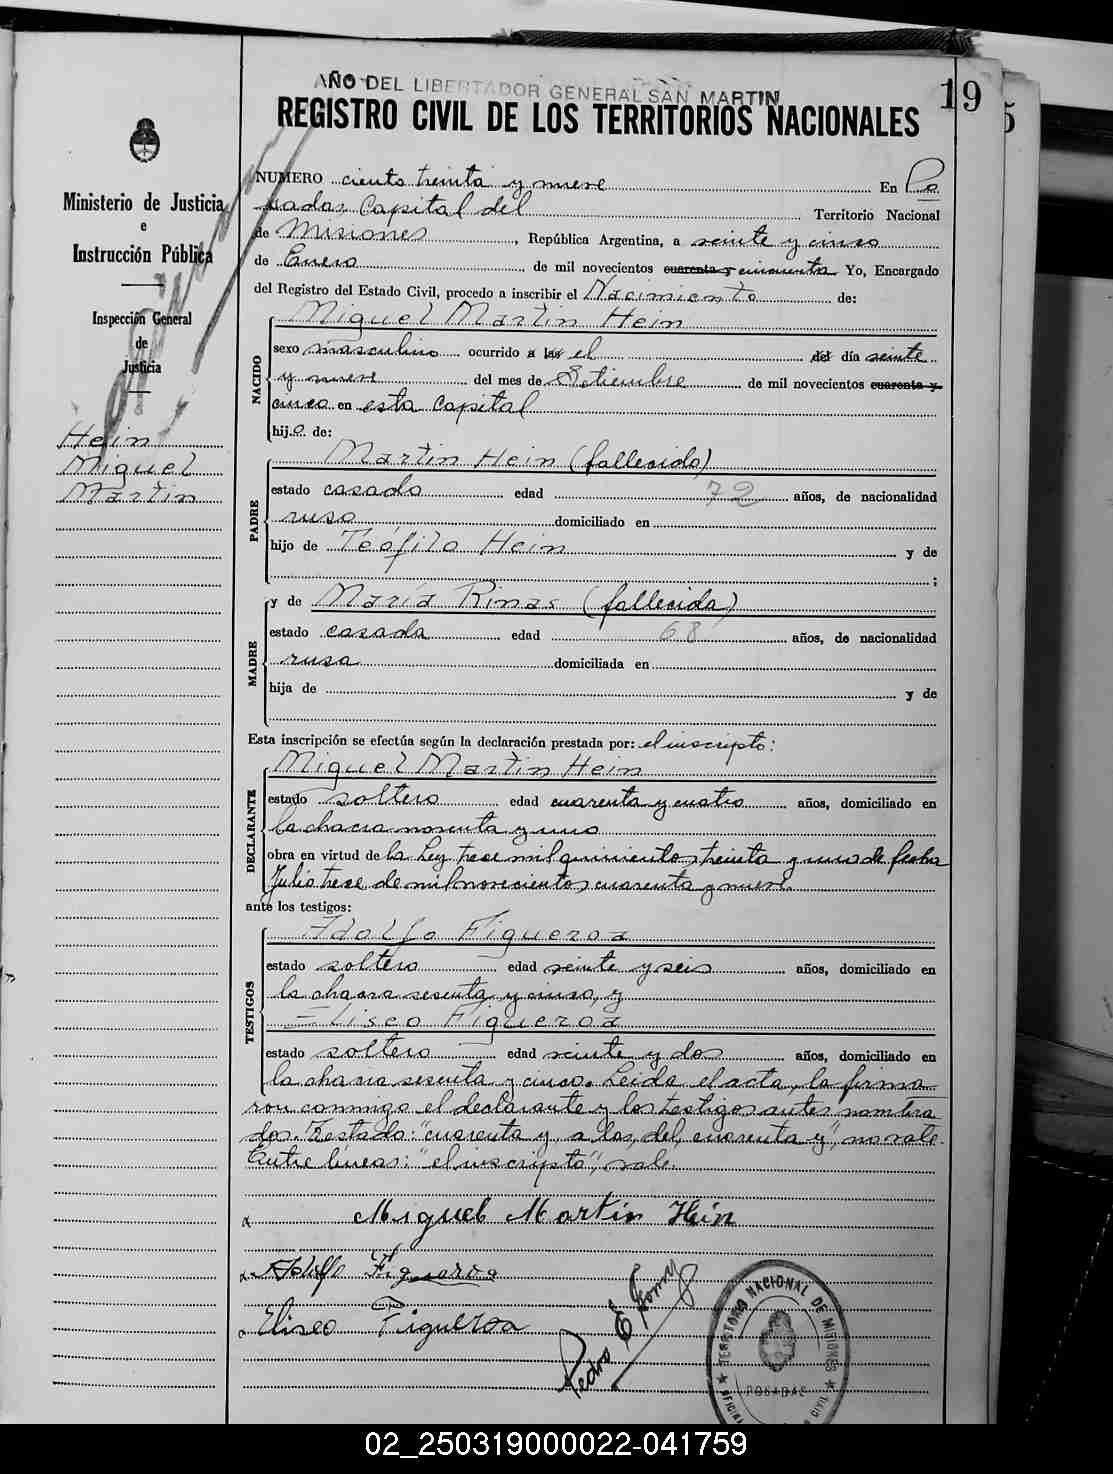 AÑO DEL LIBERTADOR GENERAL SAN MARTIN
19
REGISTRO CIVIL DE LOS TERRITORIOS NACIONALES
Ministerio de Justicia
e
Instrucción Pública
Inspección General
de
Justicia
Hein
Miguel
Martin
NUMERO ciento treinta y nueve En Po
sadas Capital del Territorio Nacional
de Misiones, República Argentina, a veinte y cinco
de Enero de mil novecientos cuarenta y cincuenta Yo, Encargado
del Registro del Estado Civil, procedo a inscribir el Nacimiento de:
NACIDO
Miguel Martin Hein
sexo masculino ocurrido a las el del día veinte
y nueve del mes de Setiembre de mil novecientos cuarenta y
cinco en esta Capital
hijo de:
PADRE
Martin Hein (fallecido)
estado casado edad 72 años, de nacionalidad
ruso domiciliado en
hijo de Teófilo Hein y de
;
MADRE
y de María Rinas (fallecida)
estado casada edad 68 años, de nacionalidad
rusa domiciliada en
hija de y de
Esta inscripción se efectúa según la declaración prestada por: el inscripto:
DECLARANTE
Miguel Martin Hein
estado soltero edad cuarenta y cuatro años, domiciliado en
la chacra noventa y uno
obra en virtud de la Ley trece mil quinientos treinta y uno de fecha
Julio trece de mil novecientos cuarenta y nueve.
ante los testigos:
TESTIGOS
Adolfo Figueroa
estado soltero edad veinte y seis años, domiciliado en
la chacra sesenta y cinco, y
Eliseo Figueroa
estado soltero edad veinte y dos años, domiciliado en
la chacra sesenta y cinco. Leida el acta, la firma
ron conmigo el declarante y los testigos antes nombra
dos. Testado: "cuarenta y, a las, del, cuarenta y", no vale.
Entre lineas: "el inscripto", vale.
x Miguel Martin Hein
x Adolfo Figueroa
x Eliseo Figueroa
Pedro E
TERRITORIO NACIONAL DE MISIONES
POSADAS
OFICINA CIVIL
02_250319000022-041759